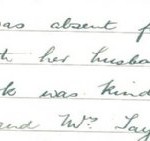 was absent f
th her husba
k was kind
and Mrs Tay